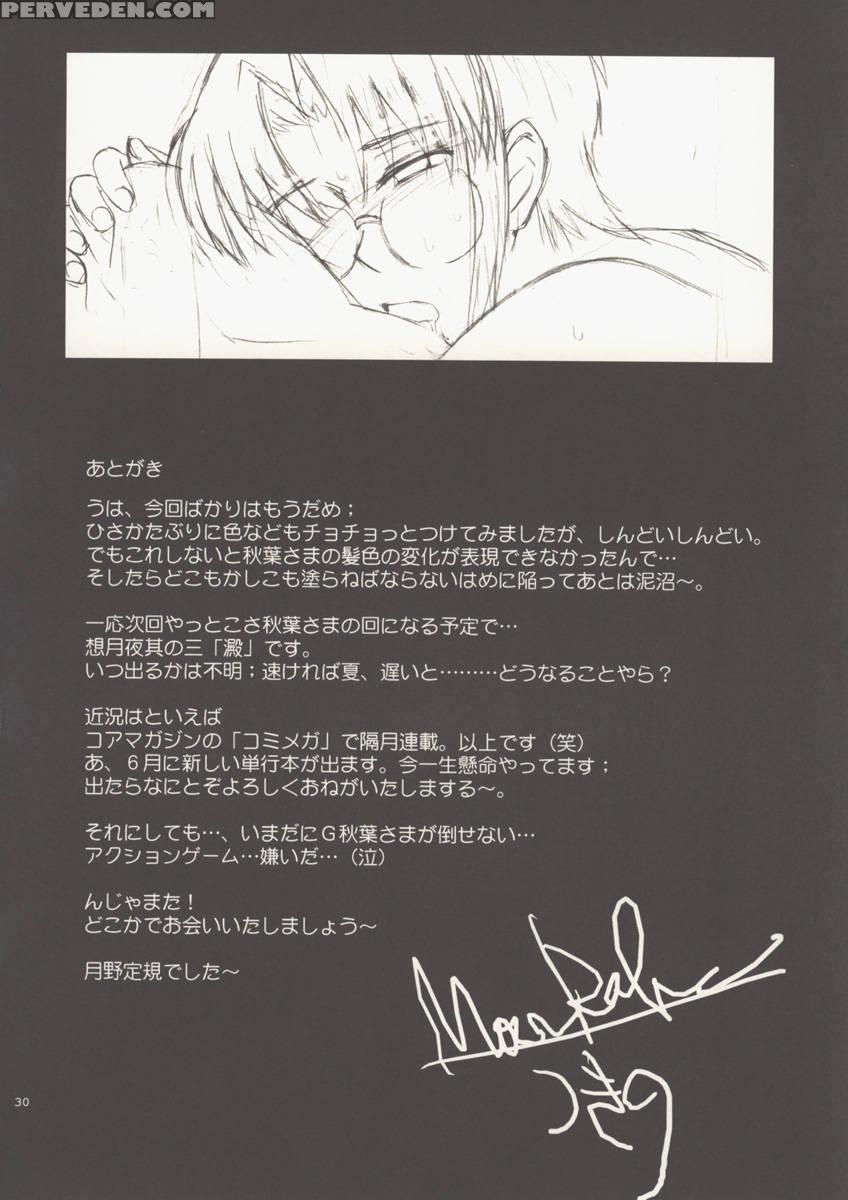 PERVEDEN.COM
あとがき
うは、今回ばかりはもうだめ;
ひさかたぶりに色などもチョチョっとつけてみましたが、しんどいしんどい。
でもこれしないと秋葉さまの髪色の変化が表現できなかったんで…
そしたらどこもかしこも塗らねばならないはめに陥ってあとは泥沼〜。
一応次回やっとこさ秋葉さまの回になる予定で…
想月夜其の三「澱」です。
いつ出るかは不明;速ければ夏、遅いと………どうなることやら?
近況はといえば
コアマガジンの「コミメガ」で隔月連載。以上です(笑)
あ、6月に新しい単行本が出ます。今一生懸命やってます;
出たらなにとぞよろしくおねがいたしまする〜。
それにしても…、いまだにG秋葉さまが倒せない…
アクションゲーム…嫌いだ…(泣)
んじゃまた!
どこかでお会いいたしましょう〜
月野定規でした〜
つきの
30